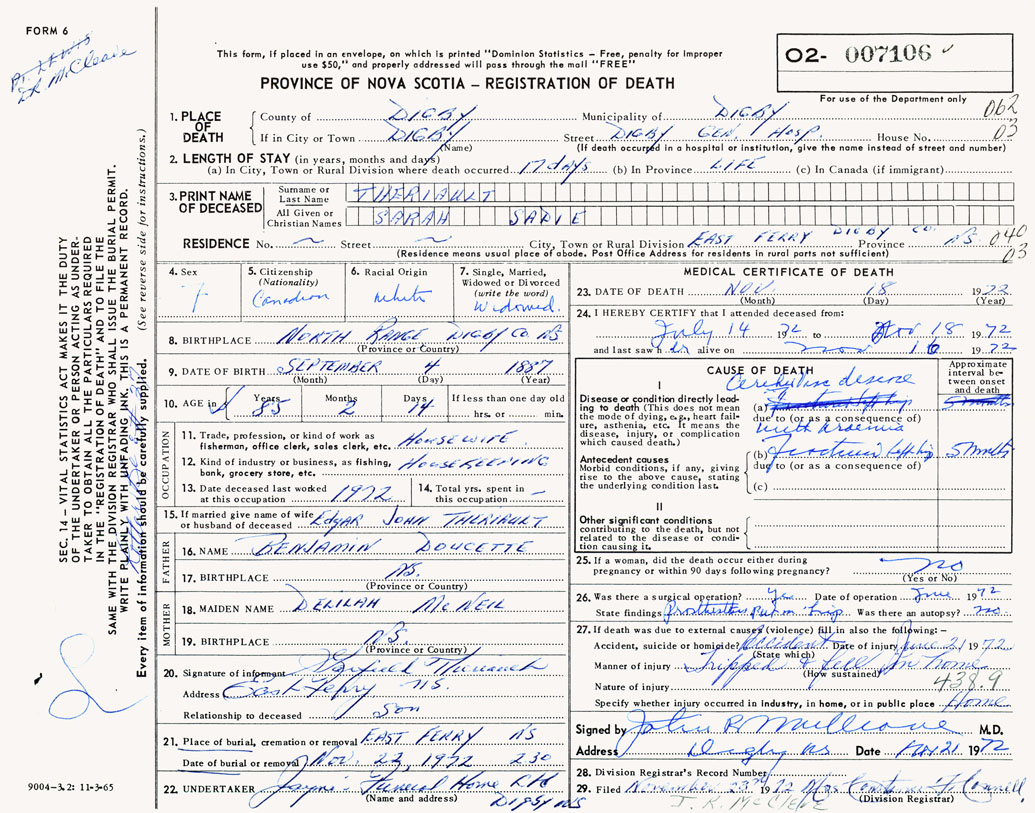 FORM 6
Dr. McCleave
This form, if placed in an envelope, on which is printed "Dominion Statistics – Free, penalty for improper
use $50," and properly addressed will pass through the mail "FREE"
PROVINCE OF NOVA SCOTIA – REGISTRATION OF DEATH
O2- 007106
For use of the Department only
062
03
1. PLACE OF DEATH
County of DIGBY Municipality of DIGBY
If in City or Town DIGBY Street DIGBY GEN. HOSP. House No.
(Name) (If death occurred in a hospital or institution, give the name instead of street and number)
2. LENGTH OF STAY (in years, months and days)
(a) In City, Town or Rural Division where death occurred 17 days (b) In Province LIFE (c) In Canada (if immigrant)
3. PRINT NAME OF DECEASED
Surname or Last Name THERIAULT
All Given or Christian Names SARAH SADIE
RESIDENCE No. ~ Street ~ City, Town or Rural Division EAST FERRY DIGBY CO. Province NS 040
(Residence means usual place of abode. Post Office Address for residents in rural parts not sufficient) 03
4. Sex
F
5. Citizenship
(Nationality)
Canadian
6. Racial Origin
White
7. Single, Married,
Widowed or Divorced
(write the word)
Widowed.
8. BIRTHPLACE NORTH RANGE DIGBY CO NS
(Province or Country)
9. DATE OF BIRTH SEPTEMBER 4 1887
(Month) (Day) (Year)
10. AGE Years 85 Months 2 Days 14 If less than one day old
hrs. or min.
OCCUPATION
11. Trade, profession, or kind of work as
fisherman, office clerk, sales clerk, etc. HOUSEWIFE
12. Kind of industry or business, as fishing,
bank, grocery store, etc. HOUSEKEEPING
13. Date deceased last worked
at this occupation 1972
14. Total yrs. spent in
this occupation –
15. If married give name of wife
or husband of deceased Edgar JOHN THERIAULT
FATHER
16. NAME BENJAMIN DOUCETTE
17. BIRTHPLACE NS.
(Province or Country)
MOTHER
18. MAIDEN NAME DELILAH McNEIL
19. BIRTHPLACE N.S.
(Province or Country)
20. Signature of informant Theriault
Address East Ferry N.S.
Relationship to deceased Son
21. Place of burial, cremation or removal EAST FERRY NS
Date of burial or removal Nov. 22, 1972 2 30
22. UNDERTAKER Jayne's Funeral Home Ltd
(Name and address) Digby NS
MEDICAL CERTIFICATE OF DEATH
23. DATE OF DEATH NOV. 18 1972
(Month) (Day) (Year)
24. I HEREBY CERTIFY that I attended deceased from:
July 14 72 to Nov 18 1972
and last saw her alive on Nov 16 1972
CAUSE OF DEATH
Approximate
interval be-
tween onset
and death
I
Disease or condition directly lead-
ing to death (This does not
mean the mode of dying, e.g., heart fail-
ure, asthenia, etc. It means the
disease, injury, or complication
which caused death.)
disease
(a)
due to (or as a consequence of)
with uraemia
Antecedent causes
Morbid conditions, if any, giving
rise to the above cause, stating
the underlying condition last.
(b) Fracture Left hip 5 months
due to (or as a consequence of)
(c)
II
Other significant conditions
contributing to the death, but not
related to the disease or condi-
tion causing it.
25. If a woman, did the death occur either during
pregnancy or within 90 days following pregnancy? no
(Yes or No)
26. Was there a surgical operation? Yes Date of operation June 1972
State findings Prosthesis put in hip Was there an autopsy? no
27. If death was due to external causes (violence) fill in also the following: –
Accident, suicide or homicide? Accident Date of injury June 21 1972
(State which)
Manner of injury Tripped & fell in home
(How sustained)
Nature of injury 438.9
Specify whether injury occurred in industry, in home, or in public place Home
Signed by John R McCleave M.D.
Address Digby NS Date Nov 21 1972
28. Division Registrar's Record Number
29. Filed November 1972 Mrs.
(Division Registrar)
J. R. McCleave
9004-3.2: 11-3-65
SEC. 14 – VITAL STATISTICS ACT MAKES IT THE DUTY
OF THE UNDERTAKER OR PERSON ACTING AS UNDER-
TAKER TO OBTAIN ALL THE PARTICULARS REQUIRED
IN THE "REGISTRATION OF DEATH" AND TO FILE THE
SAME WITH THE DIVISION REGISTRAR WHO SHALL ISSUE THE BURIAL PERMIT.
WRITE PLAINLY WITH UNFADING INK. THIS IS A PERMANENT RECORD.
Every item of information should be carefully supplied. (See reverse side for instructions.)